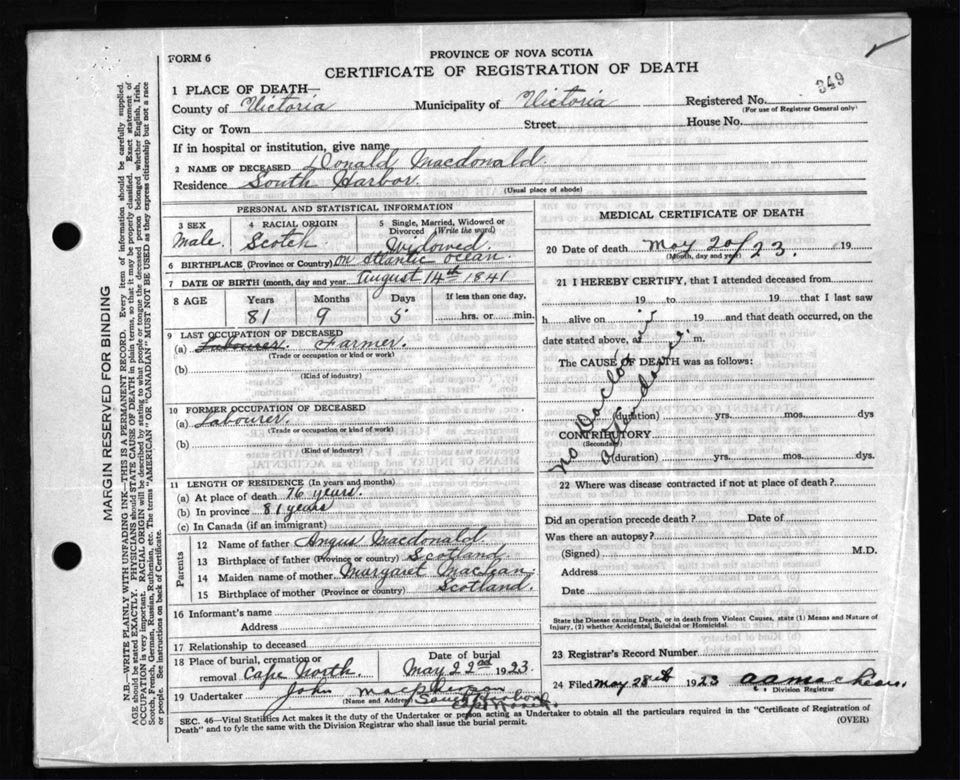 FORM 6
PROVINCE OF NOVA SCOTIA
CERTIFICATE OF REGISTRATION OF DEATH
349
1 PLACE OF DEATH—
County of Victoria Municipality of Victoria Registered No.
(For use of Registrar General only)
City or Town Street House No.
If in hospital or institution, give name
2 NAME OF DECEASED Donald Macdonald
Residence South Harbor.
(Usual place of abode)
PERSONAL AND STATISTICAL INFORMATION
3 SEX 4 RACIAL ORIGIN 5 Single, Married, Widowed or
Divorced (Write the word)
Male. Scotch Widowed.
6 BIRTHPLACE (Province or Country) On Atlantic Ocean.
7 DATE OF BIRTH (month, day and year August 14th 1841
8 AGE Years Months Days If less than one day,
81 9 5 hrs. or min.
9 LAST OCCUPATION OF DECEASED
(a) Labourer. Farmer.
(Trade or occupation or kind or work)
(b)
(Kind of industry)
10 FORMER OCCUPATION OF DECEASED
(a) Labourer.
(Trade or occupation or kind of work)
(b)
(Kind of industry)
11 LENGTH OF RESIDENCE (In years and months)
(a) At place of death 76 years.
(b) In province 81 years
(c) In Canada (if an immigrant)
Parents
12 Name of father Angus Macdonald
13 Birthplace of father (Province or country) Scotland.
14 Maiden name of mother Margaret
15 Birthplace of mother (Province or country) Scotland.
16 Informant's name
Address
17 Relationship to deceased
18 Place of burial, cremation or Date of burial
removal Cape North May 22nd 1923.
19 Undertaker John
(Name and Address)
MEDICAL CERTIFICATE OF DEATH
20 Date of death May 20/23. 19
(Month, day and year)
21 I HEREBY CERTIFY, that I attended deceased from
19 to 19 that I last saw
h alive on 19 and that death occurred, on the
date stated above, a m.
The CAUSE OF DEATH was as follows:
no Doctor in
attendance.
(duration) yrs. mos. dys
CONTRIBUTORY
(Secondary)
(duration) yrs. mos. dys.
22 Where was disease contracted if not at place of death?
Did an operation precede death? Date of
Was there an autopsy?
(Signed) M.D.
Address
Date
State the Disease causing Death, or in death from Violent Causes, state (1) Means and Nature of
Injury, (2) whether Accidental, Suicidal or Homicidal.
23 Registrar's Record Number
24 Filed May 28th 1923
Division Registrar
SEC. 46—Vital Statistics Act makes it the duty of the Undertaker or person acting as Undertaker to obtain all the particulars required in the "Certificate of Registration of
Death" and to fyle the same with the Division Registrar who shall issue the burial permit. (OVER)
MARGIN RESERVED FOR BINDING
N.B.—WRITE PLAINLY WITH UNFADING INK—THIS IS A PERMANENT RECORD. Every item of information should be carefully supplied.
AGE should be stated EXACTLY. PHYSICIANS should STATE CAUSE OF DEATH in plain terms, so that it may be properly classified. Exact statement of
OCCUPATION is very important. RACIAL ORIGIN will be described by stating to what people or tongue the deceased person belonged whether English, Irish,
Scotch, French, German, Russian, Ruthenian, etc. The terms "AMERICAN" OR "CANADIAN" MUST NOT BE USED as they express citizenship but not a race
or people. See instructions on back of Certificate.